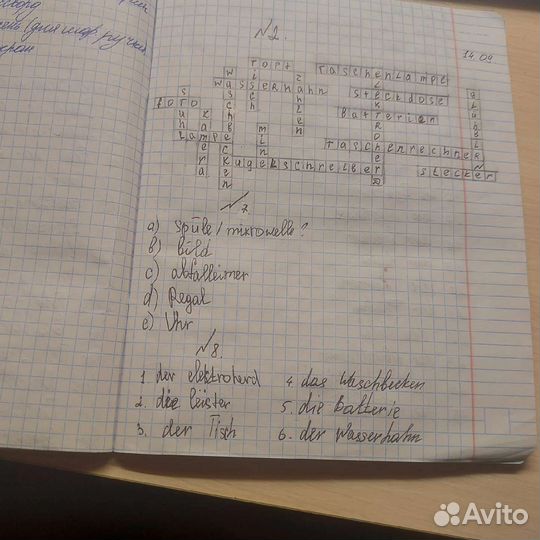 ручки
№2.
14.09
TOPF
TASCHENLAMPE
WASSERHAHN
STECKDOSE
FOTO
BATTERIEN
LAMPE
TASCHENRECHNER
KUGELSCHREIBER
STECKER
№7.
a) Spüle / mikrowelle?
b) bild
c) abfalleimer
d) Regal
e) Uhr
№8.
1. der elektroherd
4. das Waschbecken
2. die leüster
5. die batterie
3. der Tisch
6. der Wasserhahn
Avito